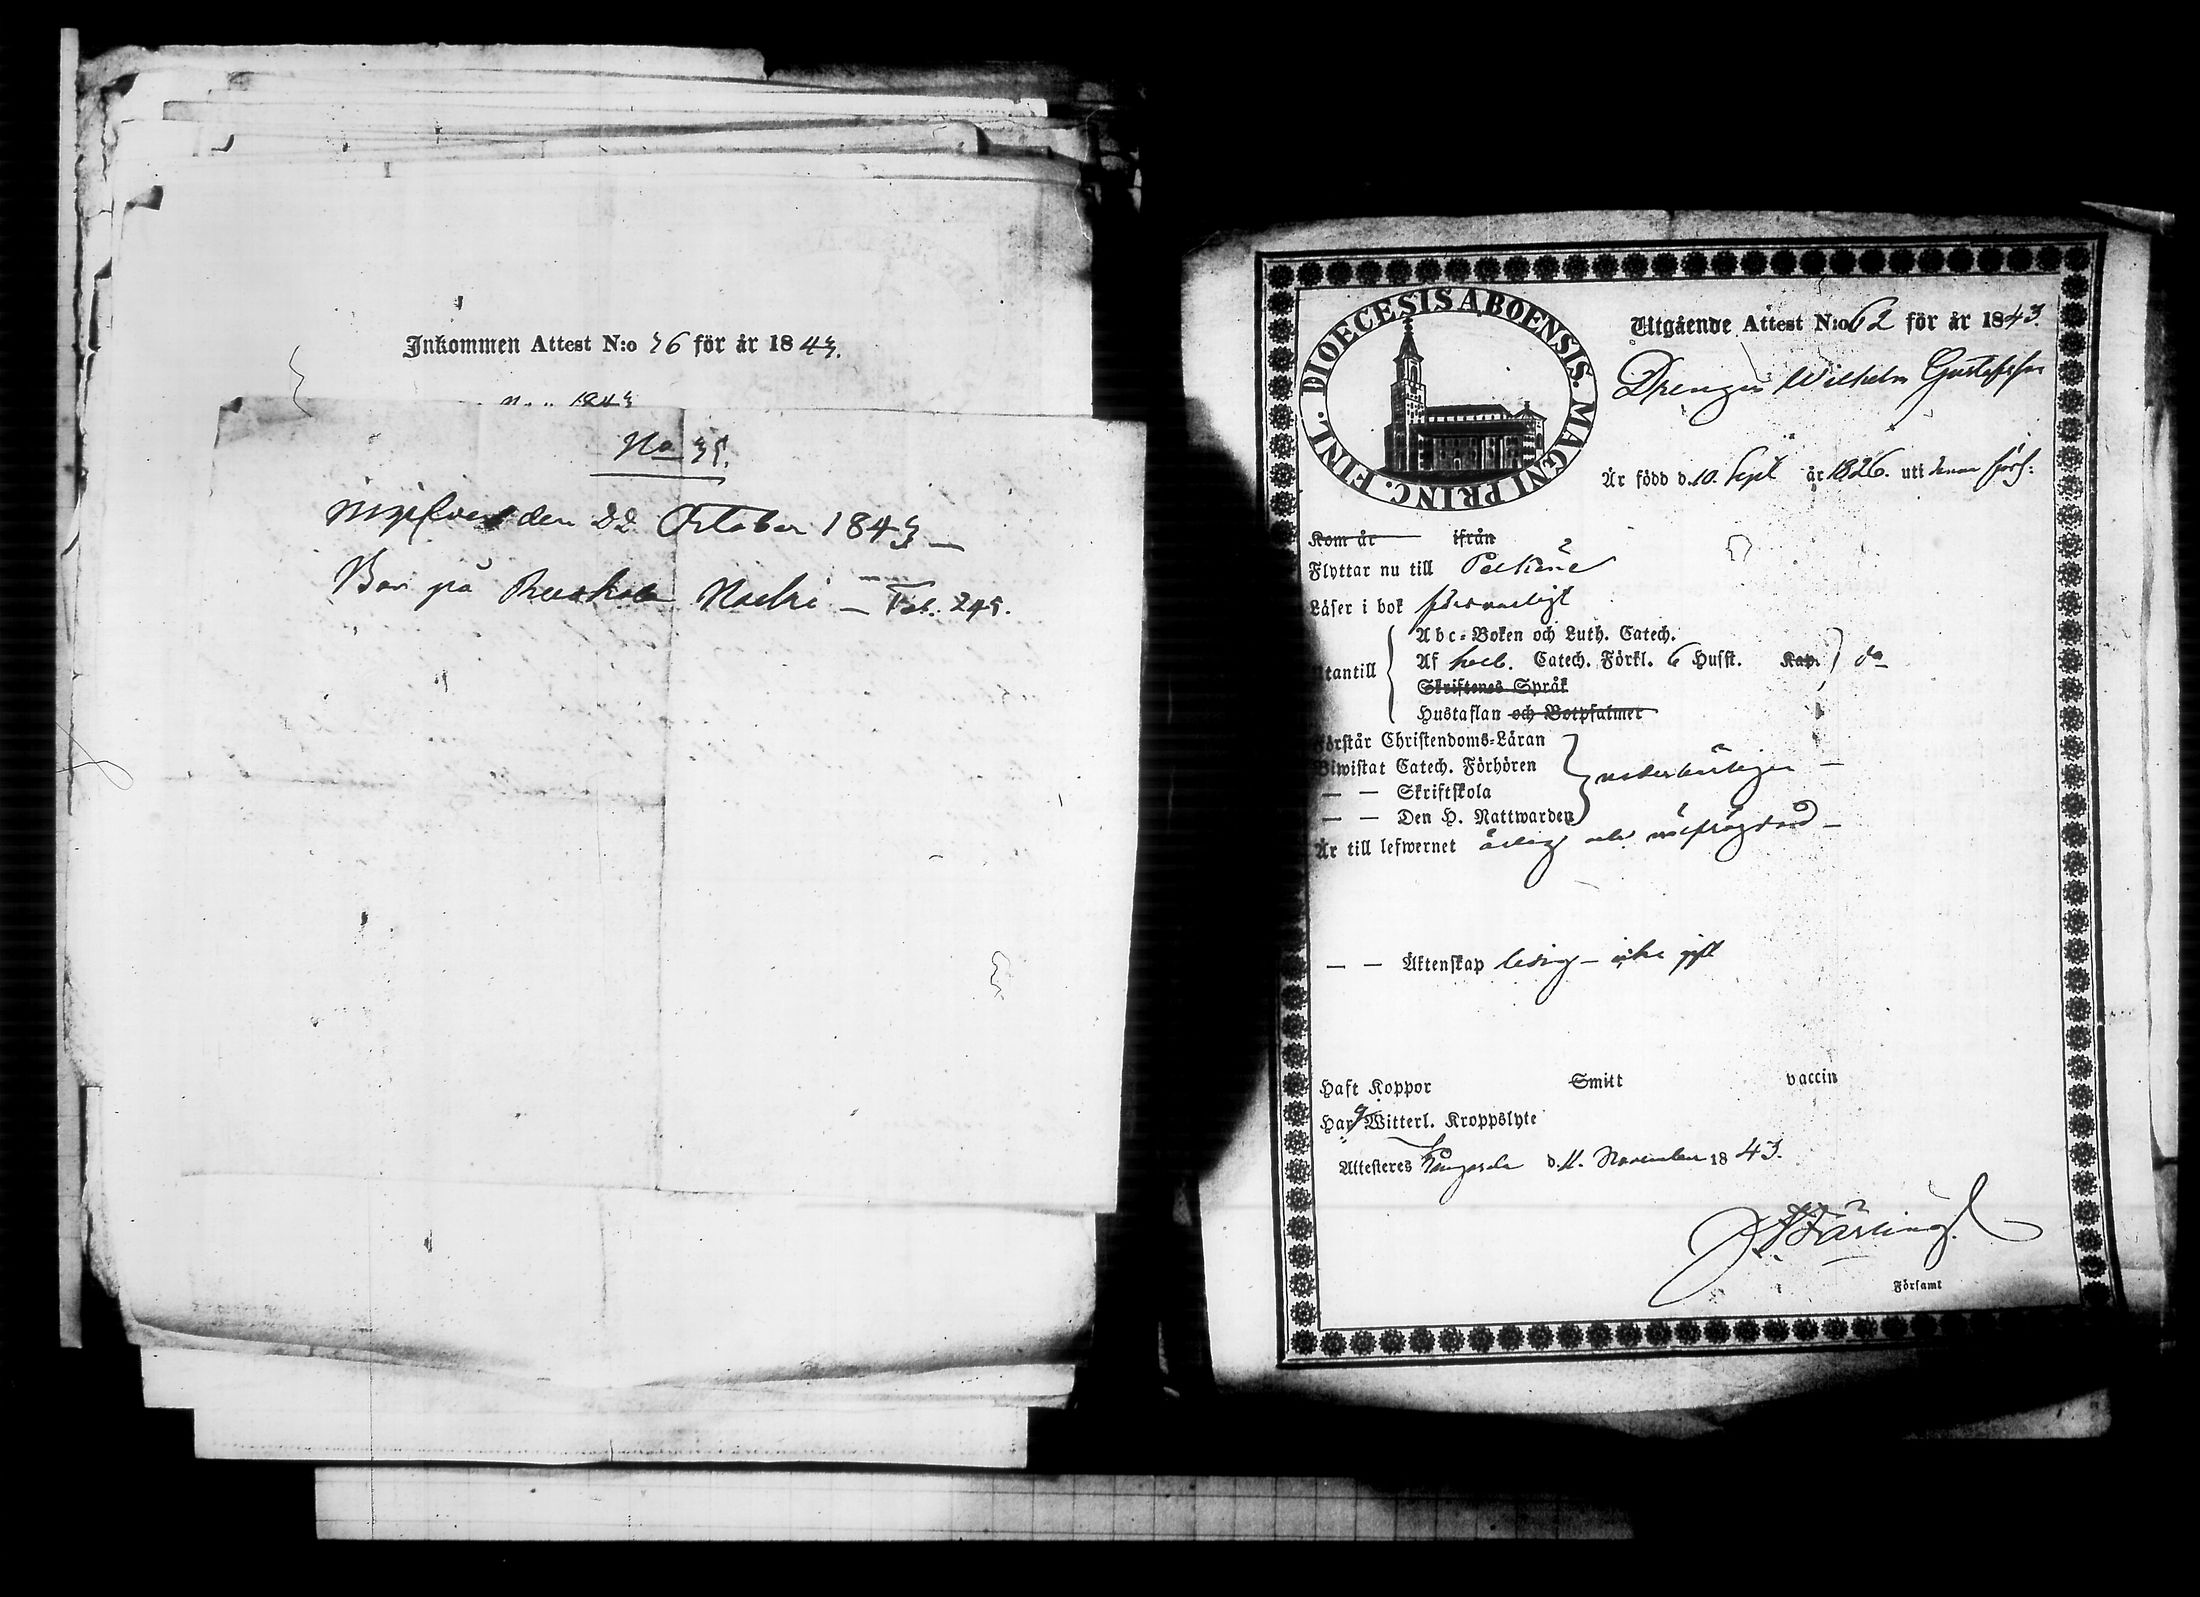 Inkommen Attest N:o 36 för år 1843.
1843
No 35.
den 22 October 1843 —
Bor på Ruokola Nocki — Fol. 245.
DIOECESIS ABOENSIS. MAGNI PRINC. FINL.
Utgående Attest N:o 62 för år 1843.
Drengen Wilhelm Gustafsson
Är född d. 10. Sept år 1826. uti denna förs:
Kom år ifrån
Flyttar nu till Pelkäne
Läser i bok försvarligt
Abc-Boken och Luth. Catech.
Utantill Af Catech. Förkl. 6 Husst. Kap. do
Skriftenes Språk
Hustaflan och Botpsalmer
Förstår Christendoms-Läran
Biwistat Catech. Förhören
— — Skriftskola
— — Den H. Nattwarden
Är till lefwernet ärlig och välfrägdad —
— — Äktenskap ledig — icke gift
Haft Koppor Smitt vaccin
Har Witterl. Kroppslyte
Attesteres Kangasala d. 11. November 1843.
Församl